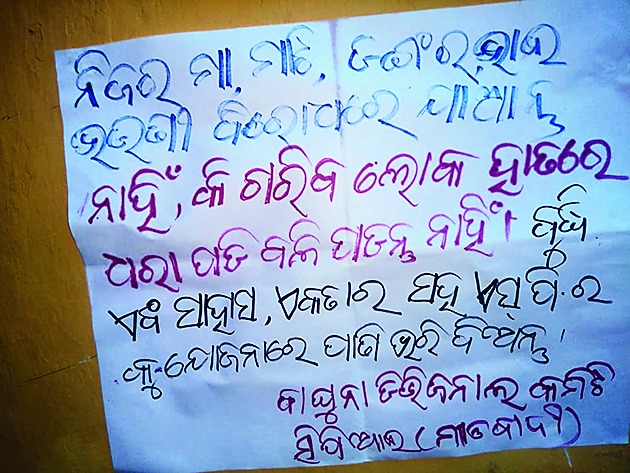 ନିଜର ମା, ମାଟି, ଜଙ୍ଗଲ
ବିରୋଧରେ ଯାଆନ୍ତୁ
ନାହିଁ, କି ଗରିବ ଲୋକ ହାତରେ
ଧରା ପଡି ବଳି ପଡନ୍ତୁ ନାହିଁ। ବୁଦ୍ଧି
ଏବଂ ସାହାସ, ଏକତାର ସହ ଏସ୍.ପି. ର
କୁ-ଯୋଜନାରେ ପାଣି ଭରି ଦିଅନ୍ତୁ।
ବାଘୁନା ଡିଭିଜନାଲ କମିଟି
ସିପିଆଇ (ମାଓବାଦୀ)